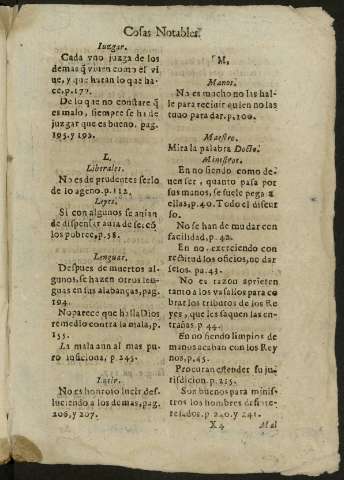 Cosas Notables.
Iuzgar.
Cada vno juzga de los
demas q̃ viuen como el vi
ue, y que haran lo que ha-
ce. p.170.
De lo que no constare q̃
es malo, siempre se ha de
juzgar que es bueno. pag.
195. y 192.
L.
Liberales.
No es de prudentes serlo
de lo ageno. p.112.
Leyes.
Si con algunos se auian
de dispensar auia de ser cõ
los pobres, p.58.
Lenguas.
Despues de muertos al-
gunos, se hazen otros len-
guas en sus alabanças, pag.
194.
No parece que halla Dios
remedio contra la mala, p.
155.
La mala aun al mas pu-
ro inficiona, p 245.
Lucir.
No es honroso lucir des-
luciendo a los demas, pag.
206, y 207.
M.
Manos.
No es mucho no las ha-
lle para reciuir quien no las
tuuo para dar. p.100.
Maestro.
Mira la palabra Docto.
Ministros.
En no siendo como de-
uen ser, quanto passa por
sus manos, se suele pegar a
ellas, p.40. Todo el discur
so.
No se han de mudar con
facilidad, p.42.
En no exerciendo con
rectitud los oficios, no dar
selos. pa.43.
No es razon aprieten
tanto a los vasallos para co
brar los tributos de los Re
yes, que les saquen las en-
trañas. p.44.
En no siendo limpios de
manos acaban con los Rey
nos, p.45.
Procuran estender su ju-
risdicion. p.255.
Son buenos para minis-
tros los hombres desinte-
resados. p 240. y 241.
X4 Mal